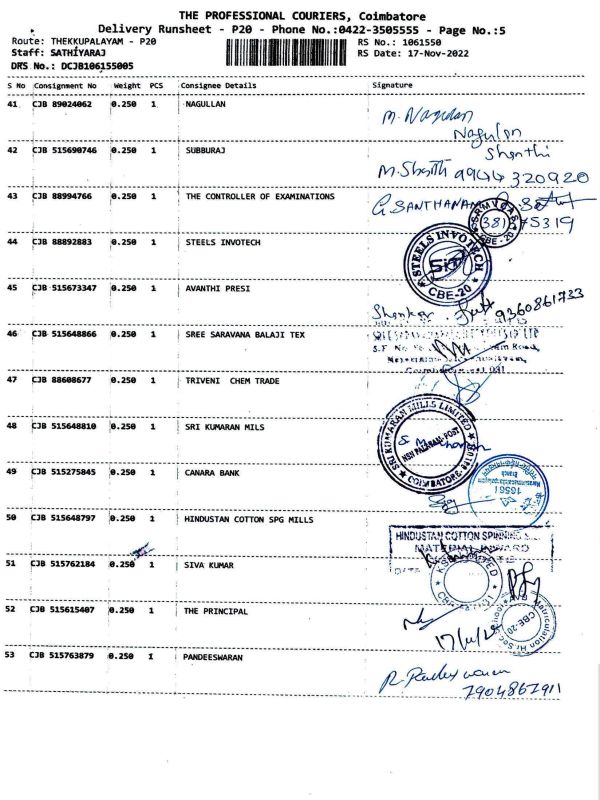 THE PROFESSIONAL COURIERS, Coimbatore
Delivery Runsheet - P20 - Phone No.:0422-3505555 - Page No.:5
Route: THEKKUPALAYAM - P20 RS No.: 1061550
Staff: SATHIYARAJ RS Date: 17-Nov-2022
DRS No.: DCJB106155005
S No Consignment No Weight PCS Consignee Details Signature
41 CJB 89024062 0.250 1 NAGULLAN
M. Nagulan
Nagulan
42 CJB 515690746 0.250 1 SUBBURAJ Shanthi
M. Shanthi 9944 320920
43 CJB 88994766 0.250 1 THE CONTROLLER OF EXAMINATIONS
G SANTHANAM
75319
CBE-20
44 CJB 88892883 0.250 1 STEELS INVOTECH
STEELS INVOTECH
SIT
CBE-20
45 CJB 515673347 0.250 1 AVANTHI PRESI
Shankar 9360861733
46 CJB 515648866 0.250 1 SREE SARAVANA BALAJI TEX
47 CJB 88608677 0.250 1 TRIVENI CHEM TRADE
48 CJB 515648810 0.250 1 SRI KUMARAN MILS
SRI KUMARAN MILLS LIMITED
NSN PALAYAM-POST
COIMBATORE
49 CJB 515275845 0.250 1 CANARA BANK
Branch
16561
50 CJB 515648797 0.250 1 HINDUSTAN COTTON SPG MILLS
HINDUSTAN COTTON SPINNING
MATERIAL INWARD
DATE
51 CJB 515762184 0.250 1 SIVA KUMAR
52 CJB 515615407 0.250 1 THE PRINCIPAL
17/11/22
CBE-20
Matriculation Hr.Sec
53 CJB 515763879 0.250 1 PANDEESWARAN
R. Pandeeswaran
7904867911